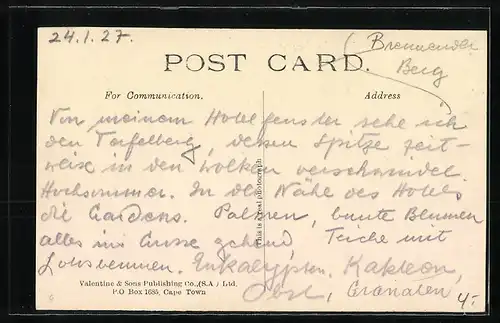 24.1.27.
Brennender
Berg
POST CARD.
For Communication.
Address
Von meinem Hotelfenster sehe ich
den Tafelberg, dessen Spitze zeit-
weise in den Wolken verschwindet.
Hochsommer. In der Nähe des Hotels
die Gardens. Palmen, bunte Blumen
alles ins Grosse gehend Teiche mit
Lotosblumen. Eukalypten, Kakteen,
Obst, Granaten
This is a real photograph
Valentine & Sons Publishing Co., (S.A.) Ltd.
P.O Box 1685, Cape Town
4.-